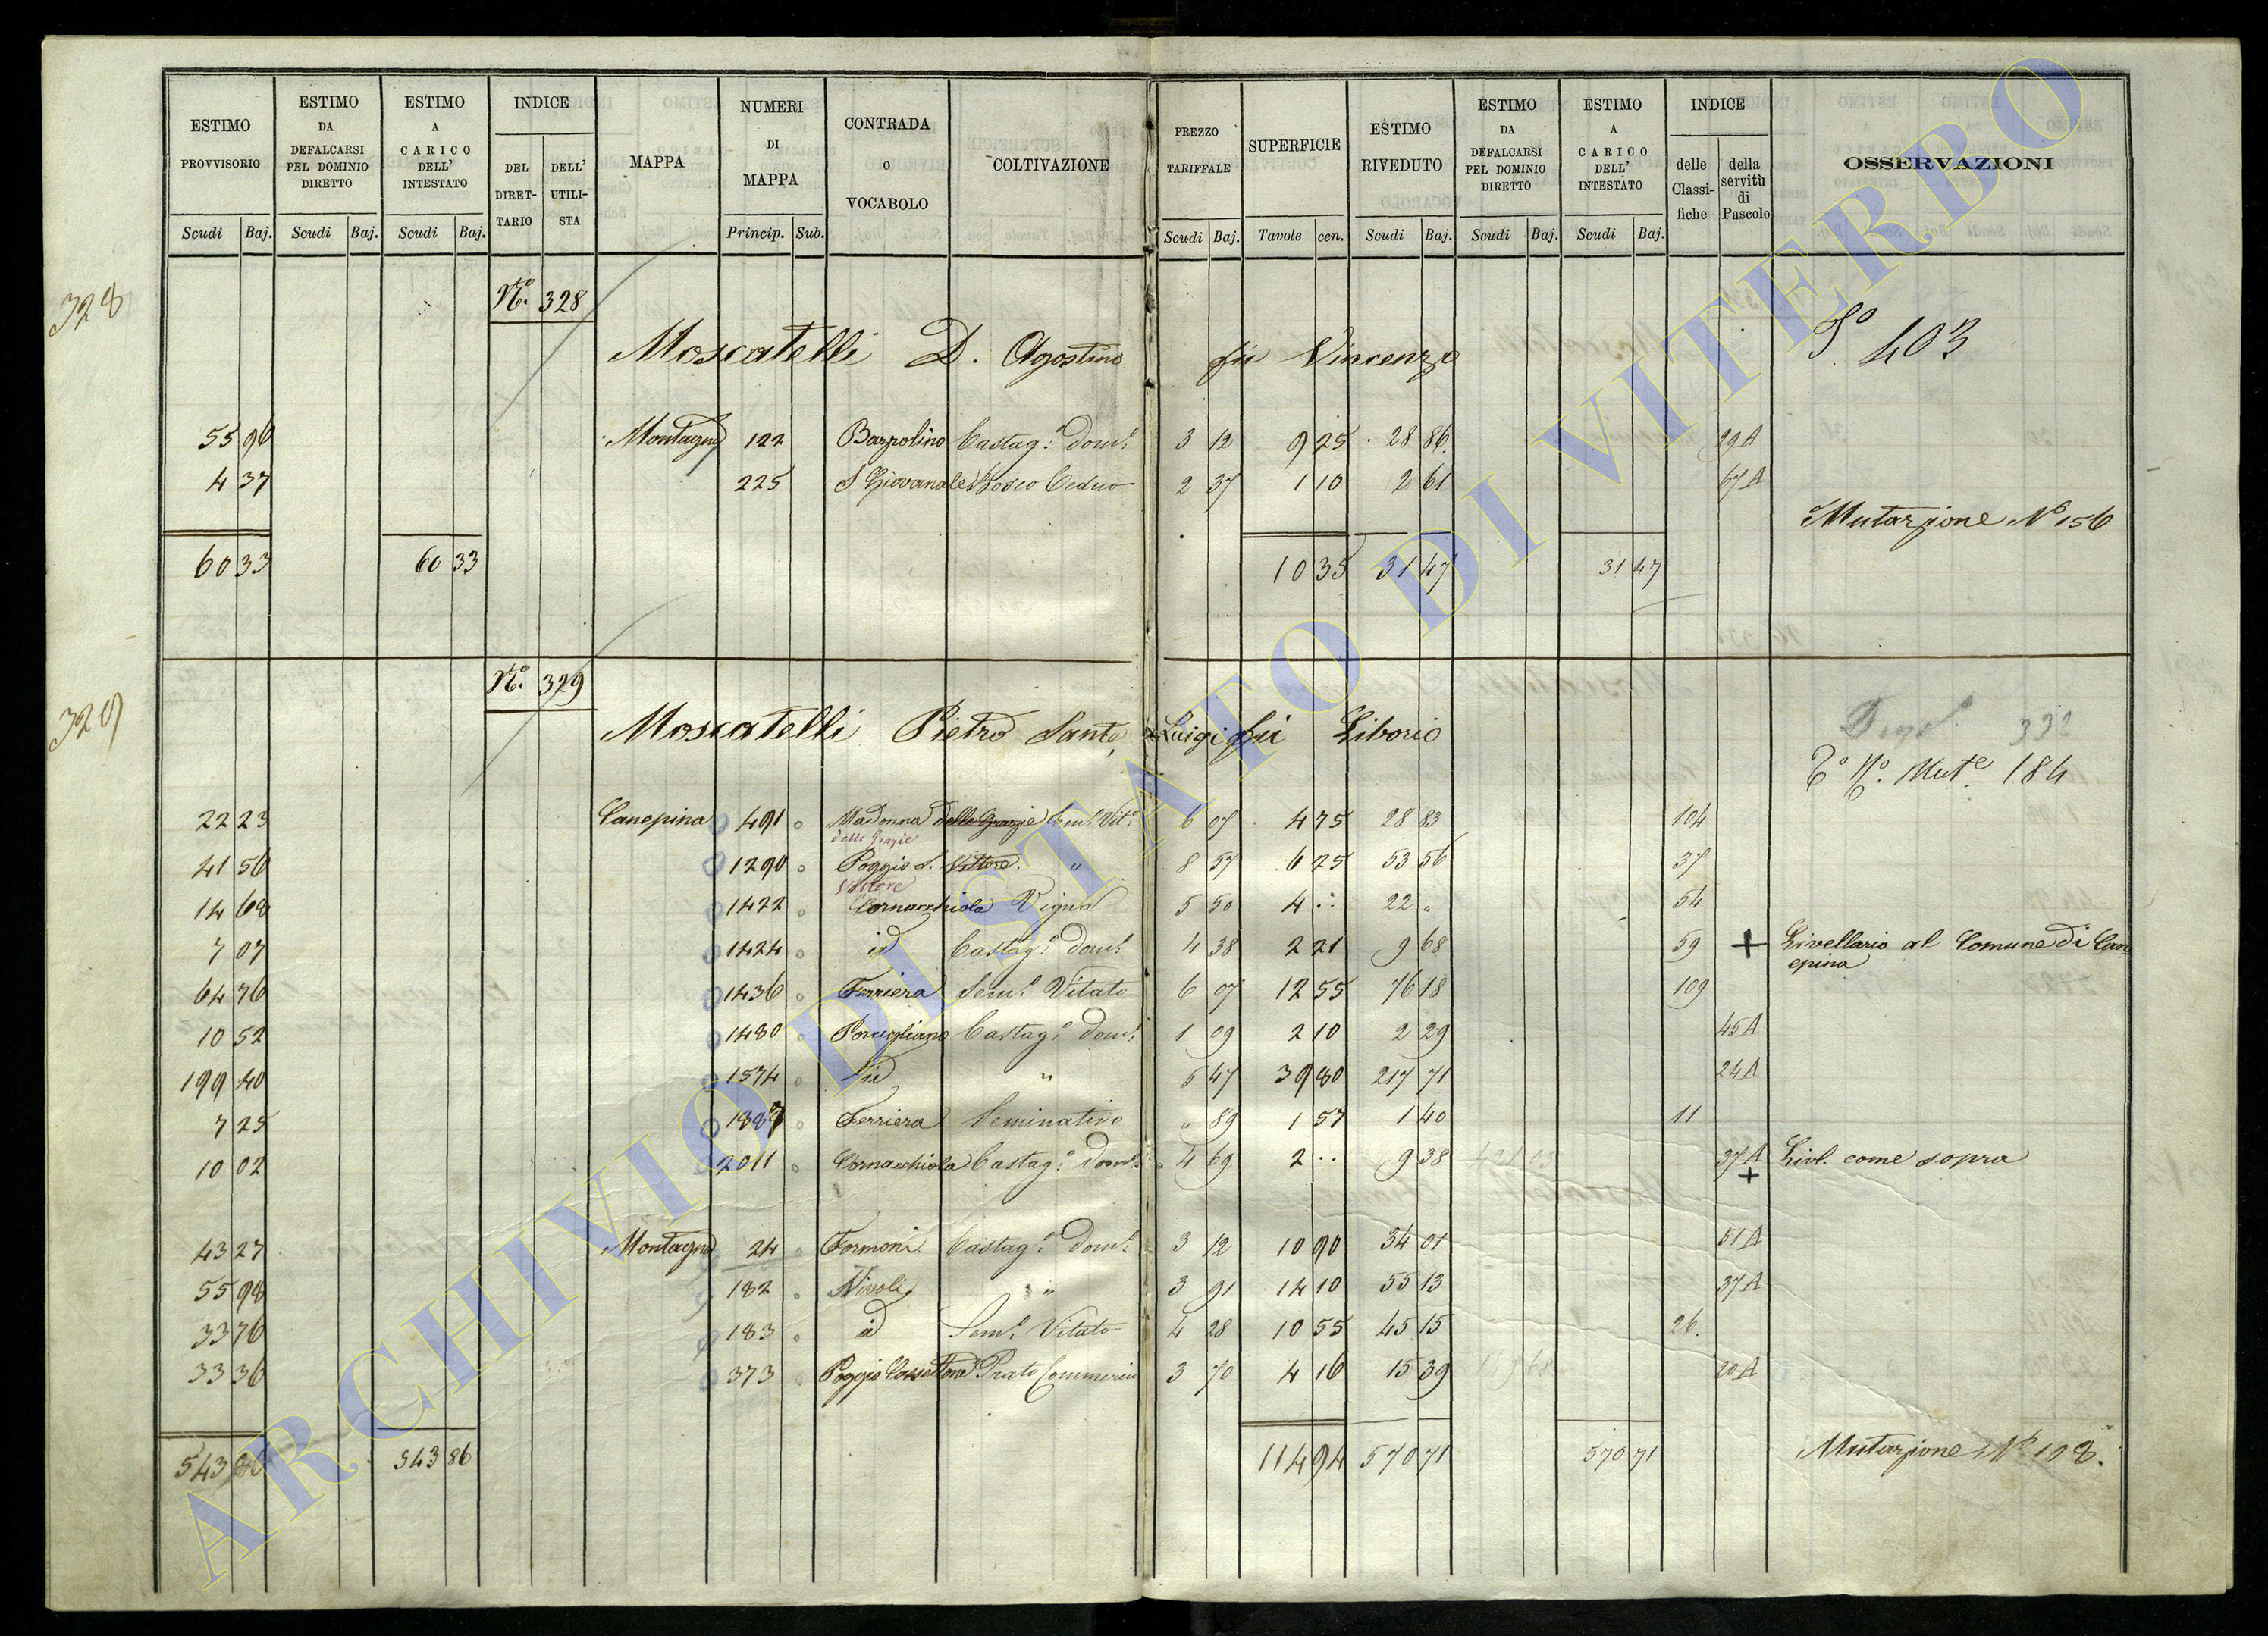 ESTIMO PROVVISORIO | ESTIMO DA DEFALCARSI PEL DOMINIO DIRETTO | ESTIMO A CARICO DELL' INTESTATO | INDICE | MAPPA | NUMERI DI MAPPA | CONTRADA o VOCABOLO | COLTIVAZIONE | PREZZO TARIFFALE | SUPERFICIE | ESTIMO RIVEDUTO | ESTIMO DA DEFALCARSI PEL DOMINIO DIRETTO | ESTIMO A CARICO DELL' INTESTATO | INDICE | OSSERVAZIONI
DEL DIRETTARIO | DELL' UTILISTA | delle Classifiche | della servitù di Pascolo
Scudi | Baj. | Scudi | Baj. | Scudi | Baj. | Princip. | Sub. | Scudi | Baj. | Tavole | cen. | Scudi | Baj. | Scudi | Baj. | Scudi | Baj.
328 Nº. 328
Moscatelli D. Agostino fu Vincenzo
403
55 96 Montagna 122 Bazzolino Castag.º Dom.º 3 12 9 25 28 86 29 A
4 37 225 S Giovenale Bosco Ceduo 2 37 1 10 2 61 67 A
Mutazione Nº 156
60 33 60 33 10 35 31 47 31 47
329 Nº. 329
Moscatelli Pietro Sante, Luigi fu Liborio
332
Nº. Mut.e 184
22 23 Canepina 491 Madonna delle Grazie Sem.º Vit.º 6 07 4 75 28 83 104
delle Grazie
41 56 1290 Poggio S. Vittore " 8 57 6 25 53 56 37
Vittore
14 68 1422 Cornacchiola Vigna 5 50 4 .. 22 " 54
7 07 1424 id Castag.º Dom.º 4 38 2 21 9 68 59 + Livellario al Comune di Can
epina
64 76 1436 Ferriera Sem.º Vitato 6 07 12 55 76 18 109
10 52 1480 Porcigliano Castag.º Dom.º 1 09 2 10 2 29 45 A
199 40 1574 id " 5 47 39 80 217 71 24 A
7 25 1887 Ferriera Seminativo " 89 1 57 1 40 11
10 02 2011 Cornacchiola Castag.º Dom.º 4 69 2 .. 9 38 37 A + Livl. come sopra
43 27 Montagna 24 Formoni Castag.º Dom.º 3 12 10 90 34 01 51 A
55 98 182 Nivoli " 3 91 14 10 55 13 37 A
33 76 183 id Sem.º Vitato 4 28 10 55 45 15 26.
33 36 373 Poggio Prato 3 70 4 16 15 39 20 A
543 86 543 86 114 94 570 71 570 71 Mutazione Nº 108.
ARCHIVIO DI STATO DI VITERBO